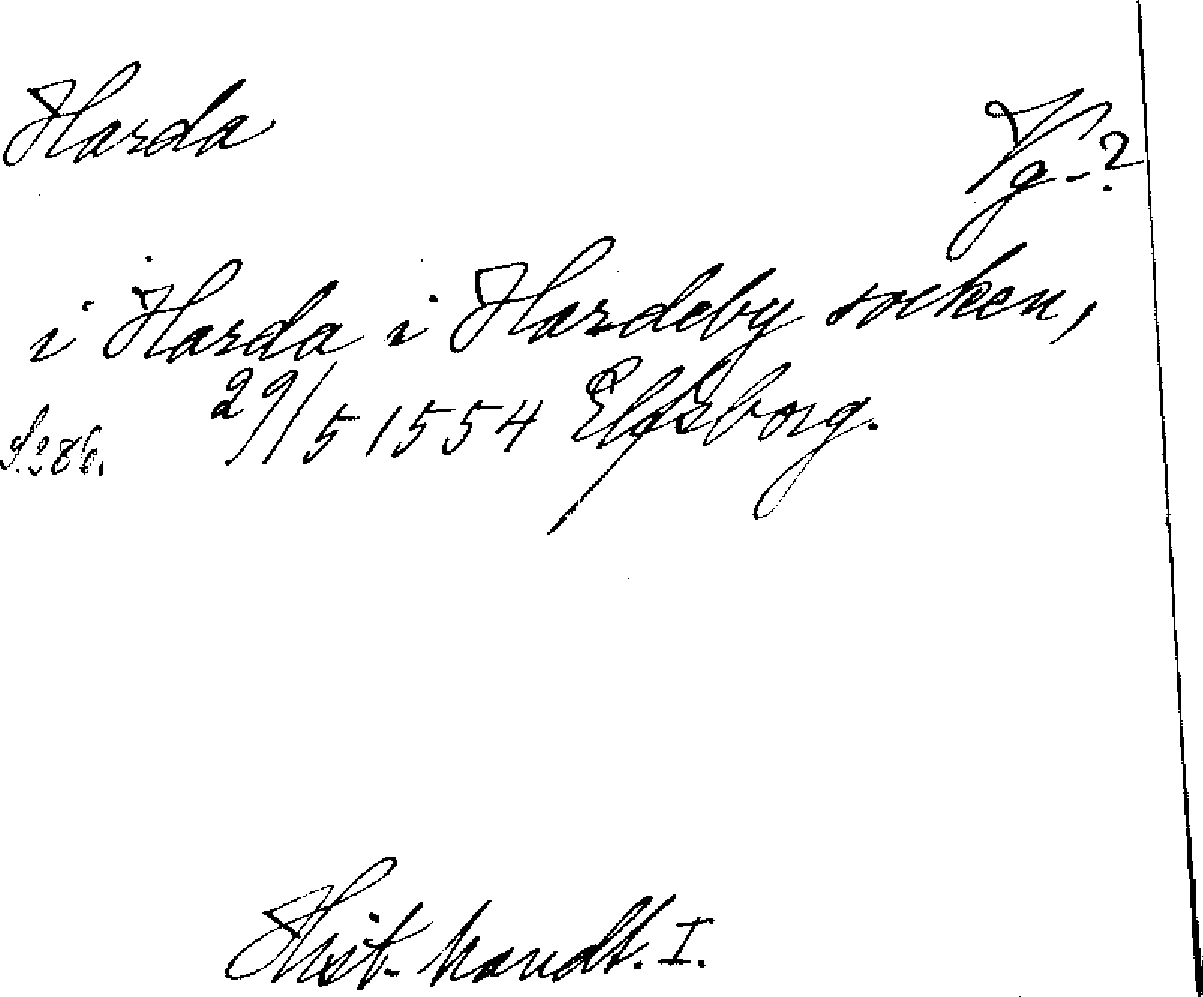 Harda
Vg.?
i Harda i Hardeby socken,
S. 386. 29/5 1554 Elfsborg.
Hist. handl. I.